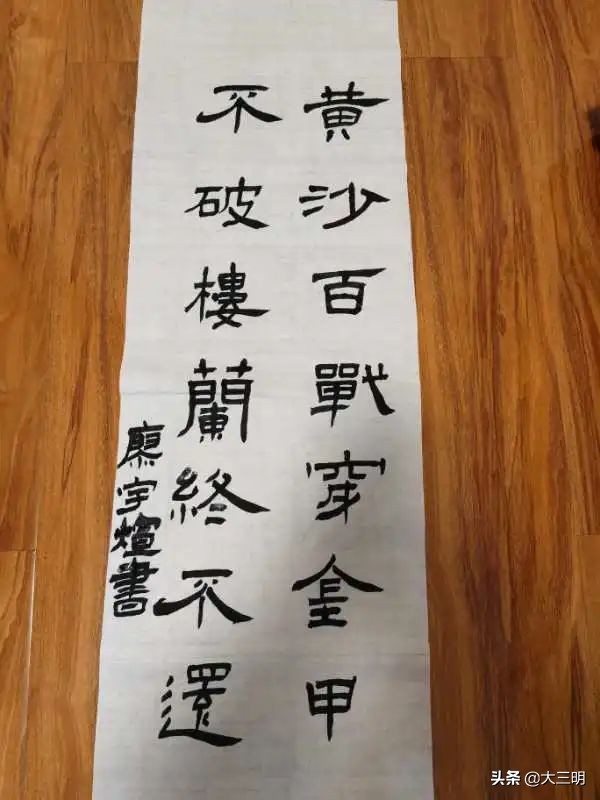 黄沙百戰穿金甲
不破樓蘭終不還
廖宇煊書
头条@大三明